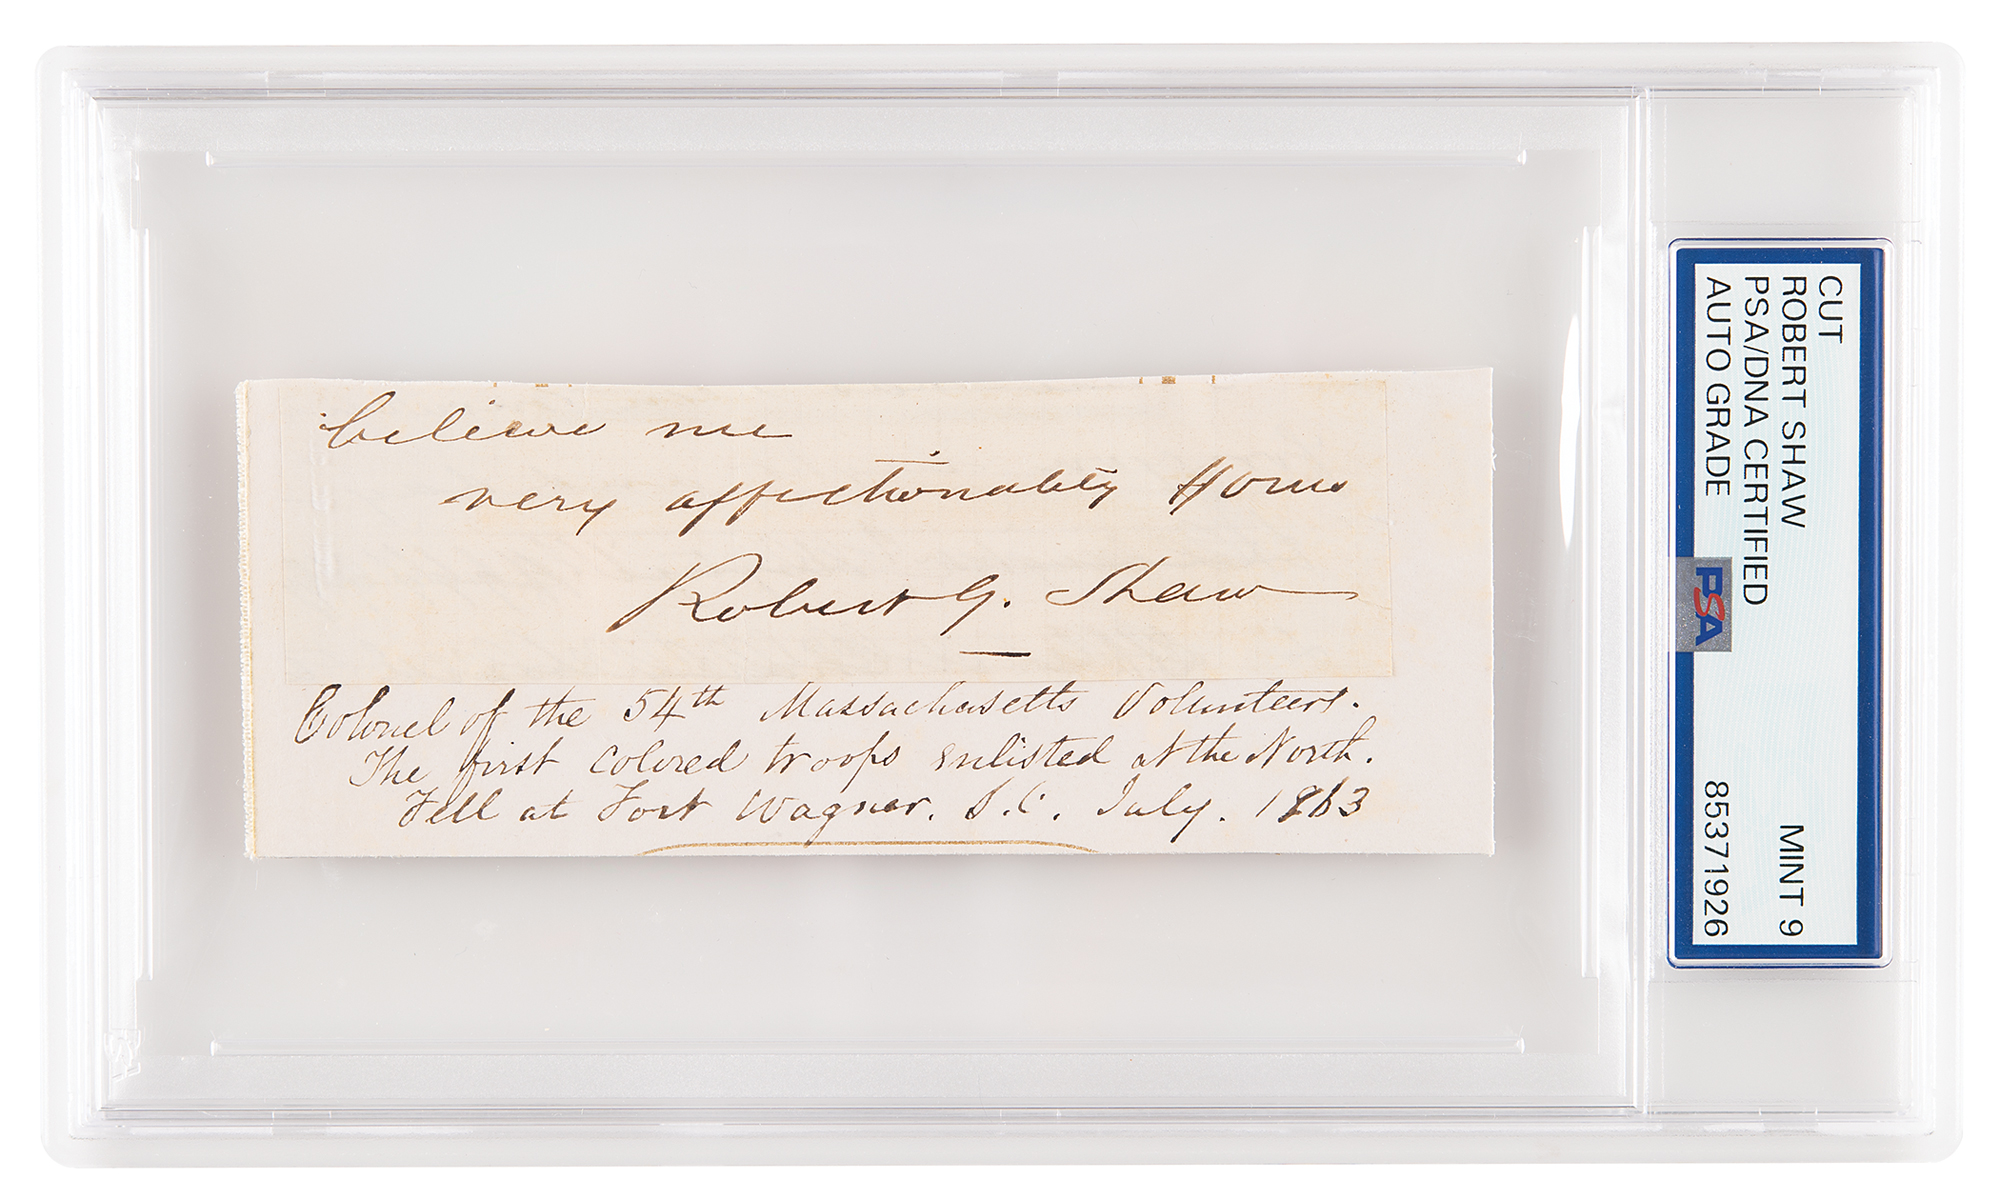 believe me
very affectionately Yours
Robert G. Shaw
Colonel of the 54th Massachusetts Volunteers.
The first colored troops enlisted at the North.
Fell at Fort Wagner. S.C. July. 1863
CUT
ROBERT SHAW MINT 9
PSA/DNA CERTIFIED
AUTO GRADE 85371926
PSA